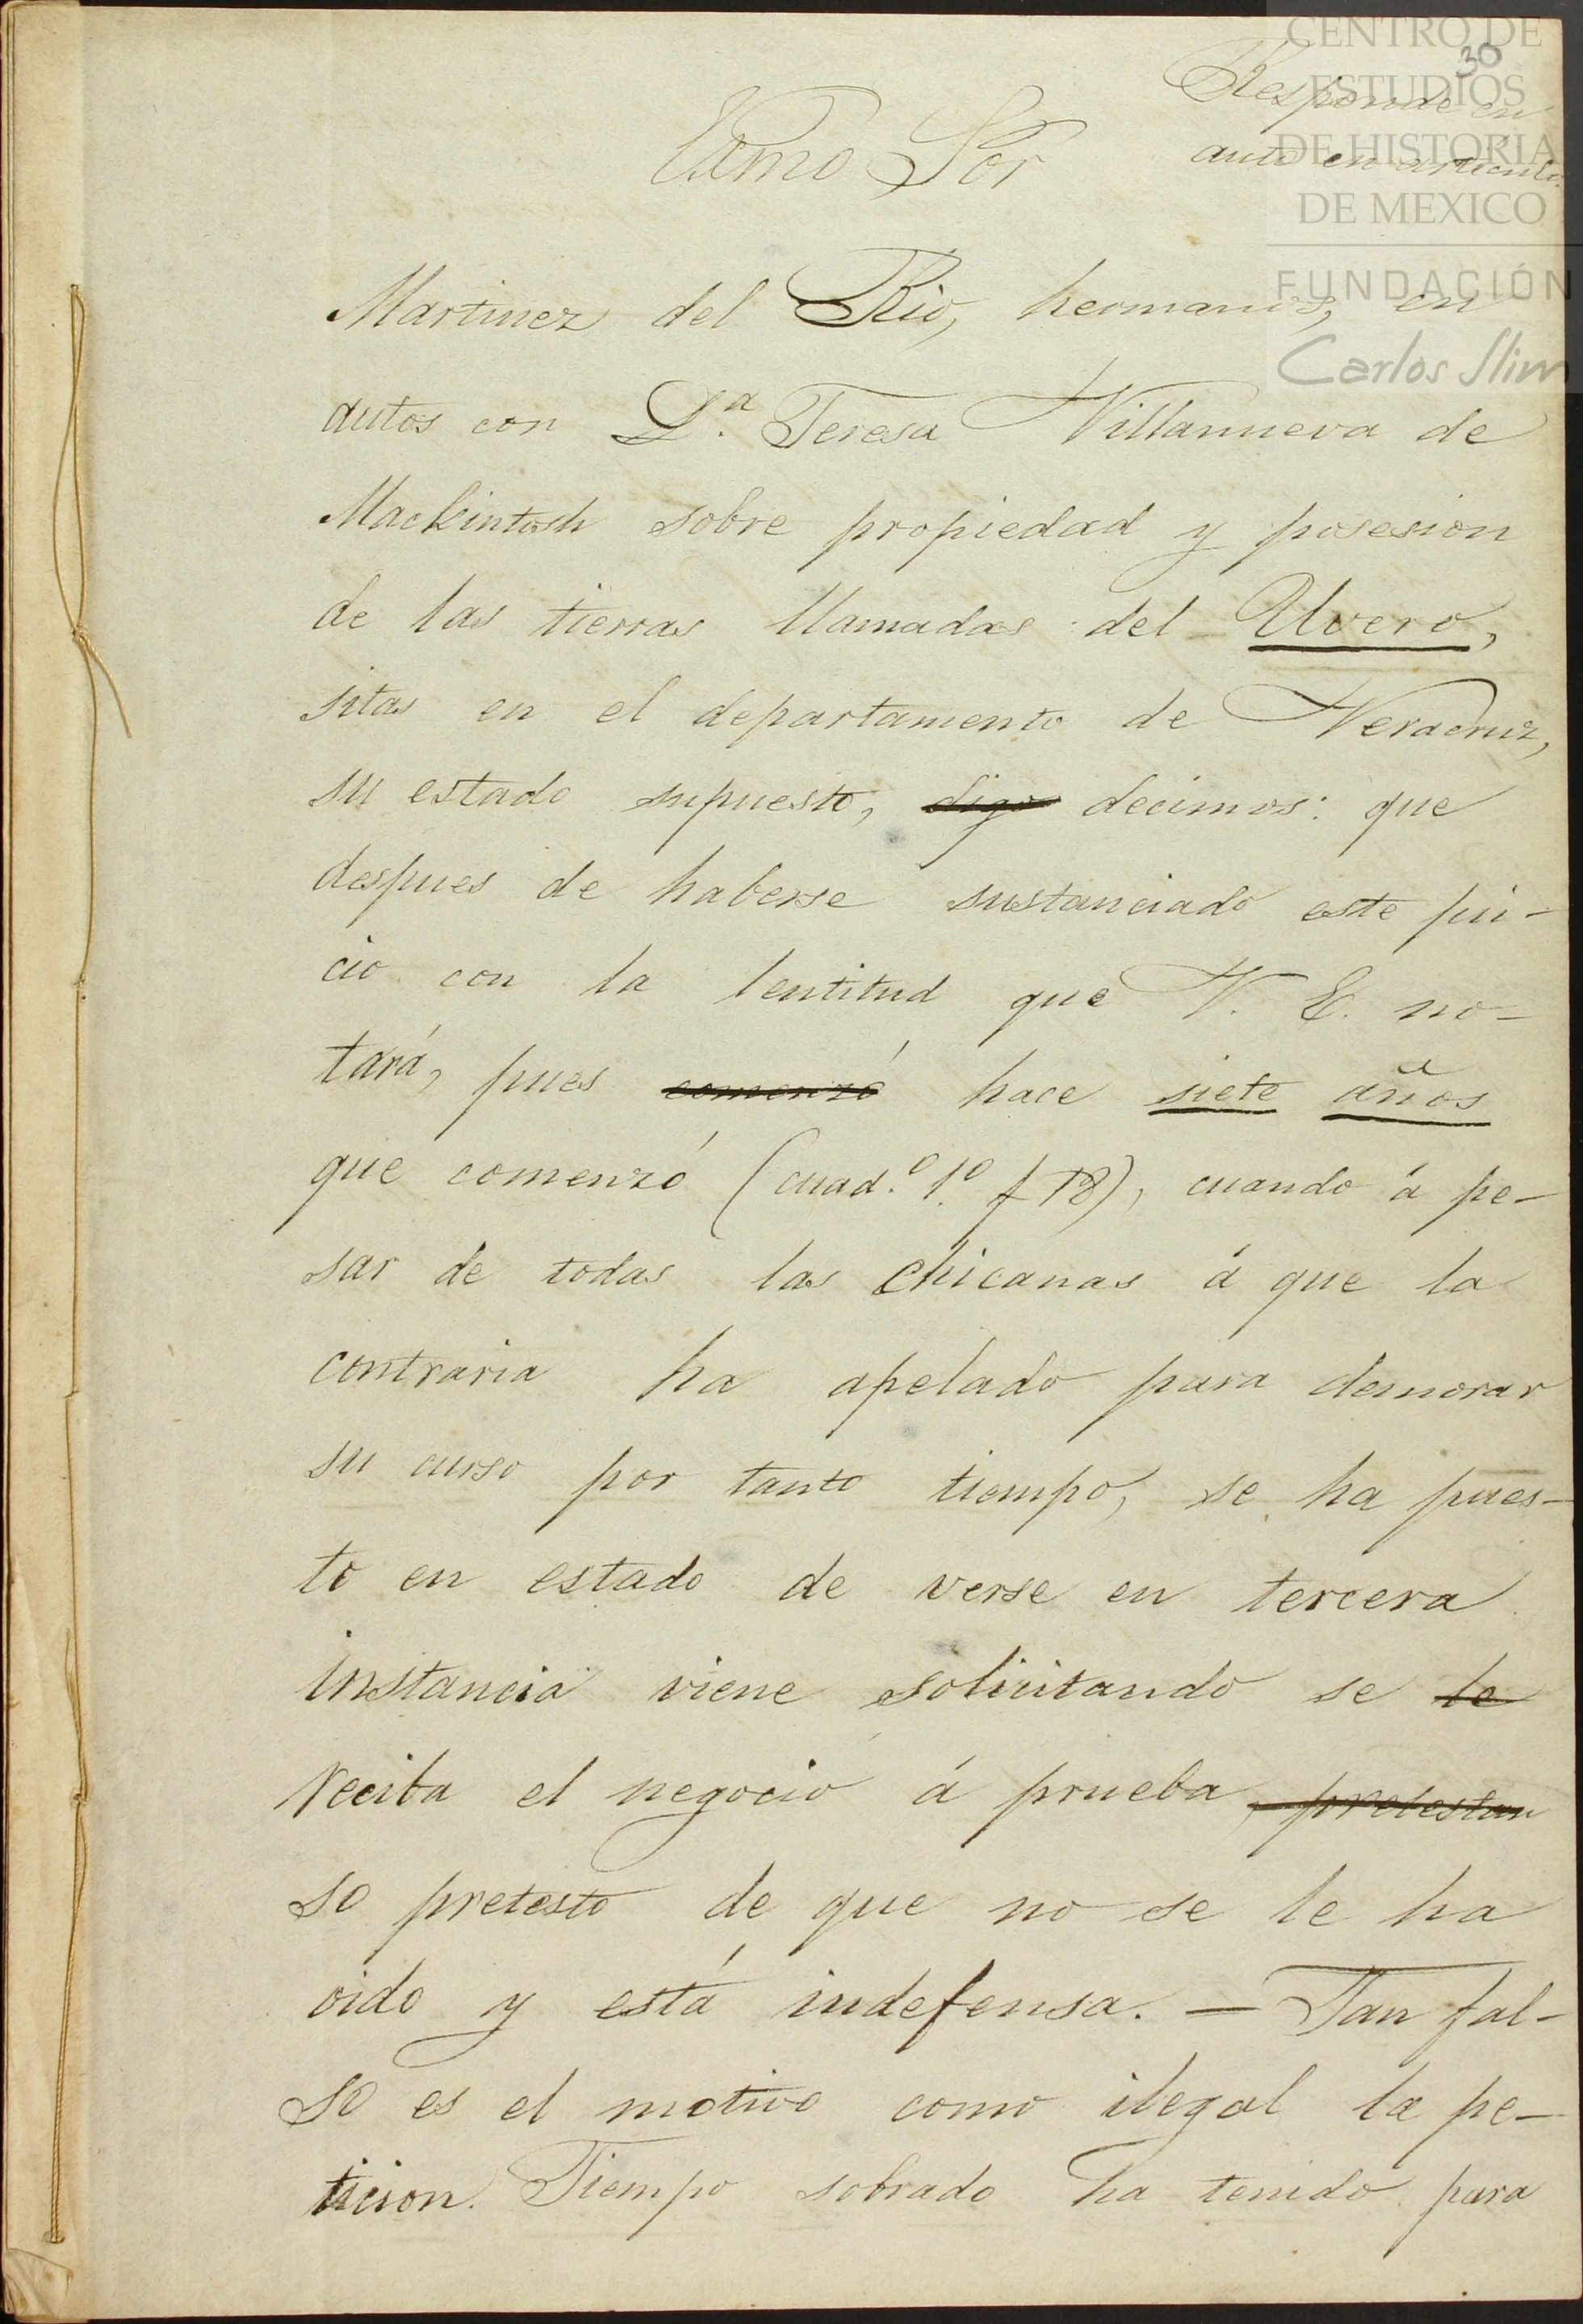 30
Responde en
auto en artículo.
Exmo Sor
Martinez del Rio, hermanos, en
autos con D.ª Teresa Villanueva de
Mackintosh sobre propiedad y posesion
de las tierras llamadas del Uvero,
sitas en el departamento de Veracruz,
su estado supuesto, digo decimos: que
despues de haberse sustanciado este jui-
cio con la lentitud que V. E. no-
tará, pues comenzó hace siete años
que comenzó (cuad.º 1.º f 18), cuando á pe-
sar de todas las chicanas á que la
contraria ha apelado para demorar
su curso por tanto tiempo, se ha pues-
to en estado de verse en tercera
instancia viene solicitando se le
reciba el negocio á prueba, pretestan
so pretesto de que no se le ha
oido y está indefensa. — Tan fal-
so es el motivo como ilegal la pe-
ticion. Tiempo sobrado ha tenido para
CENTRO DE
ESTUDIOS
DE HISTORIA
DE MEXICO
FUNDACIÓN
Carlos Slim